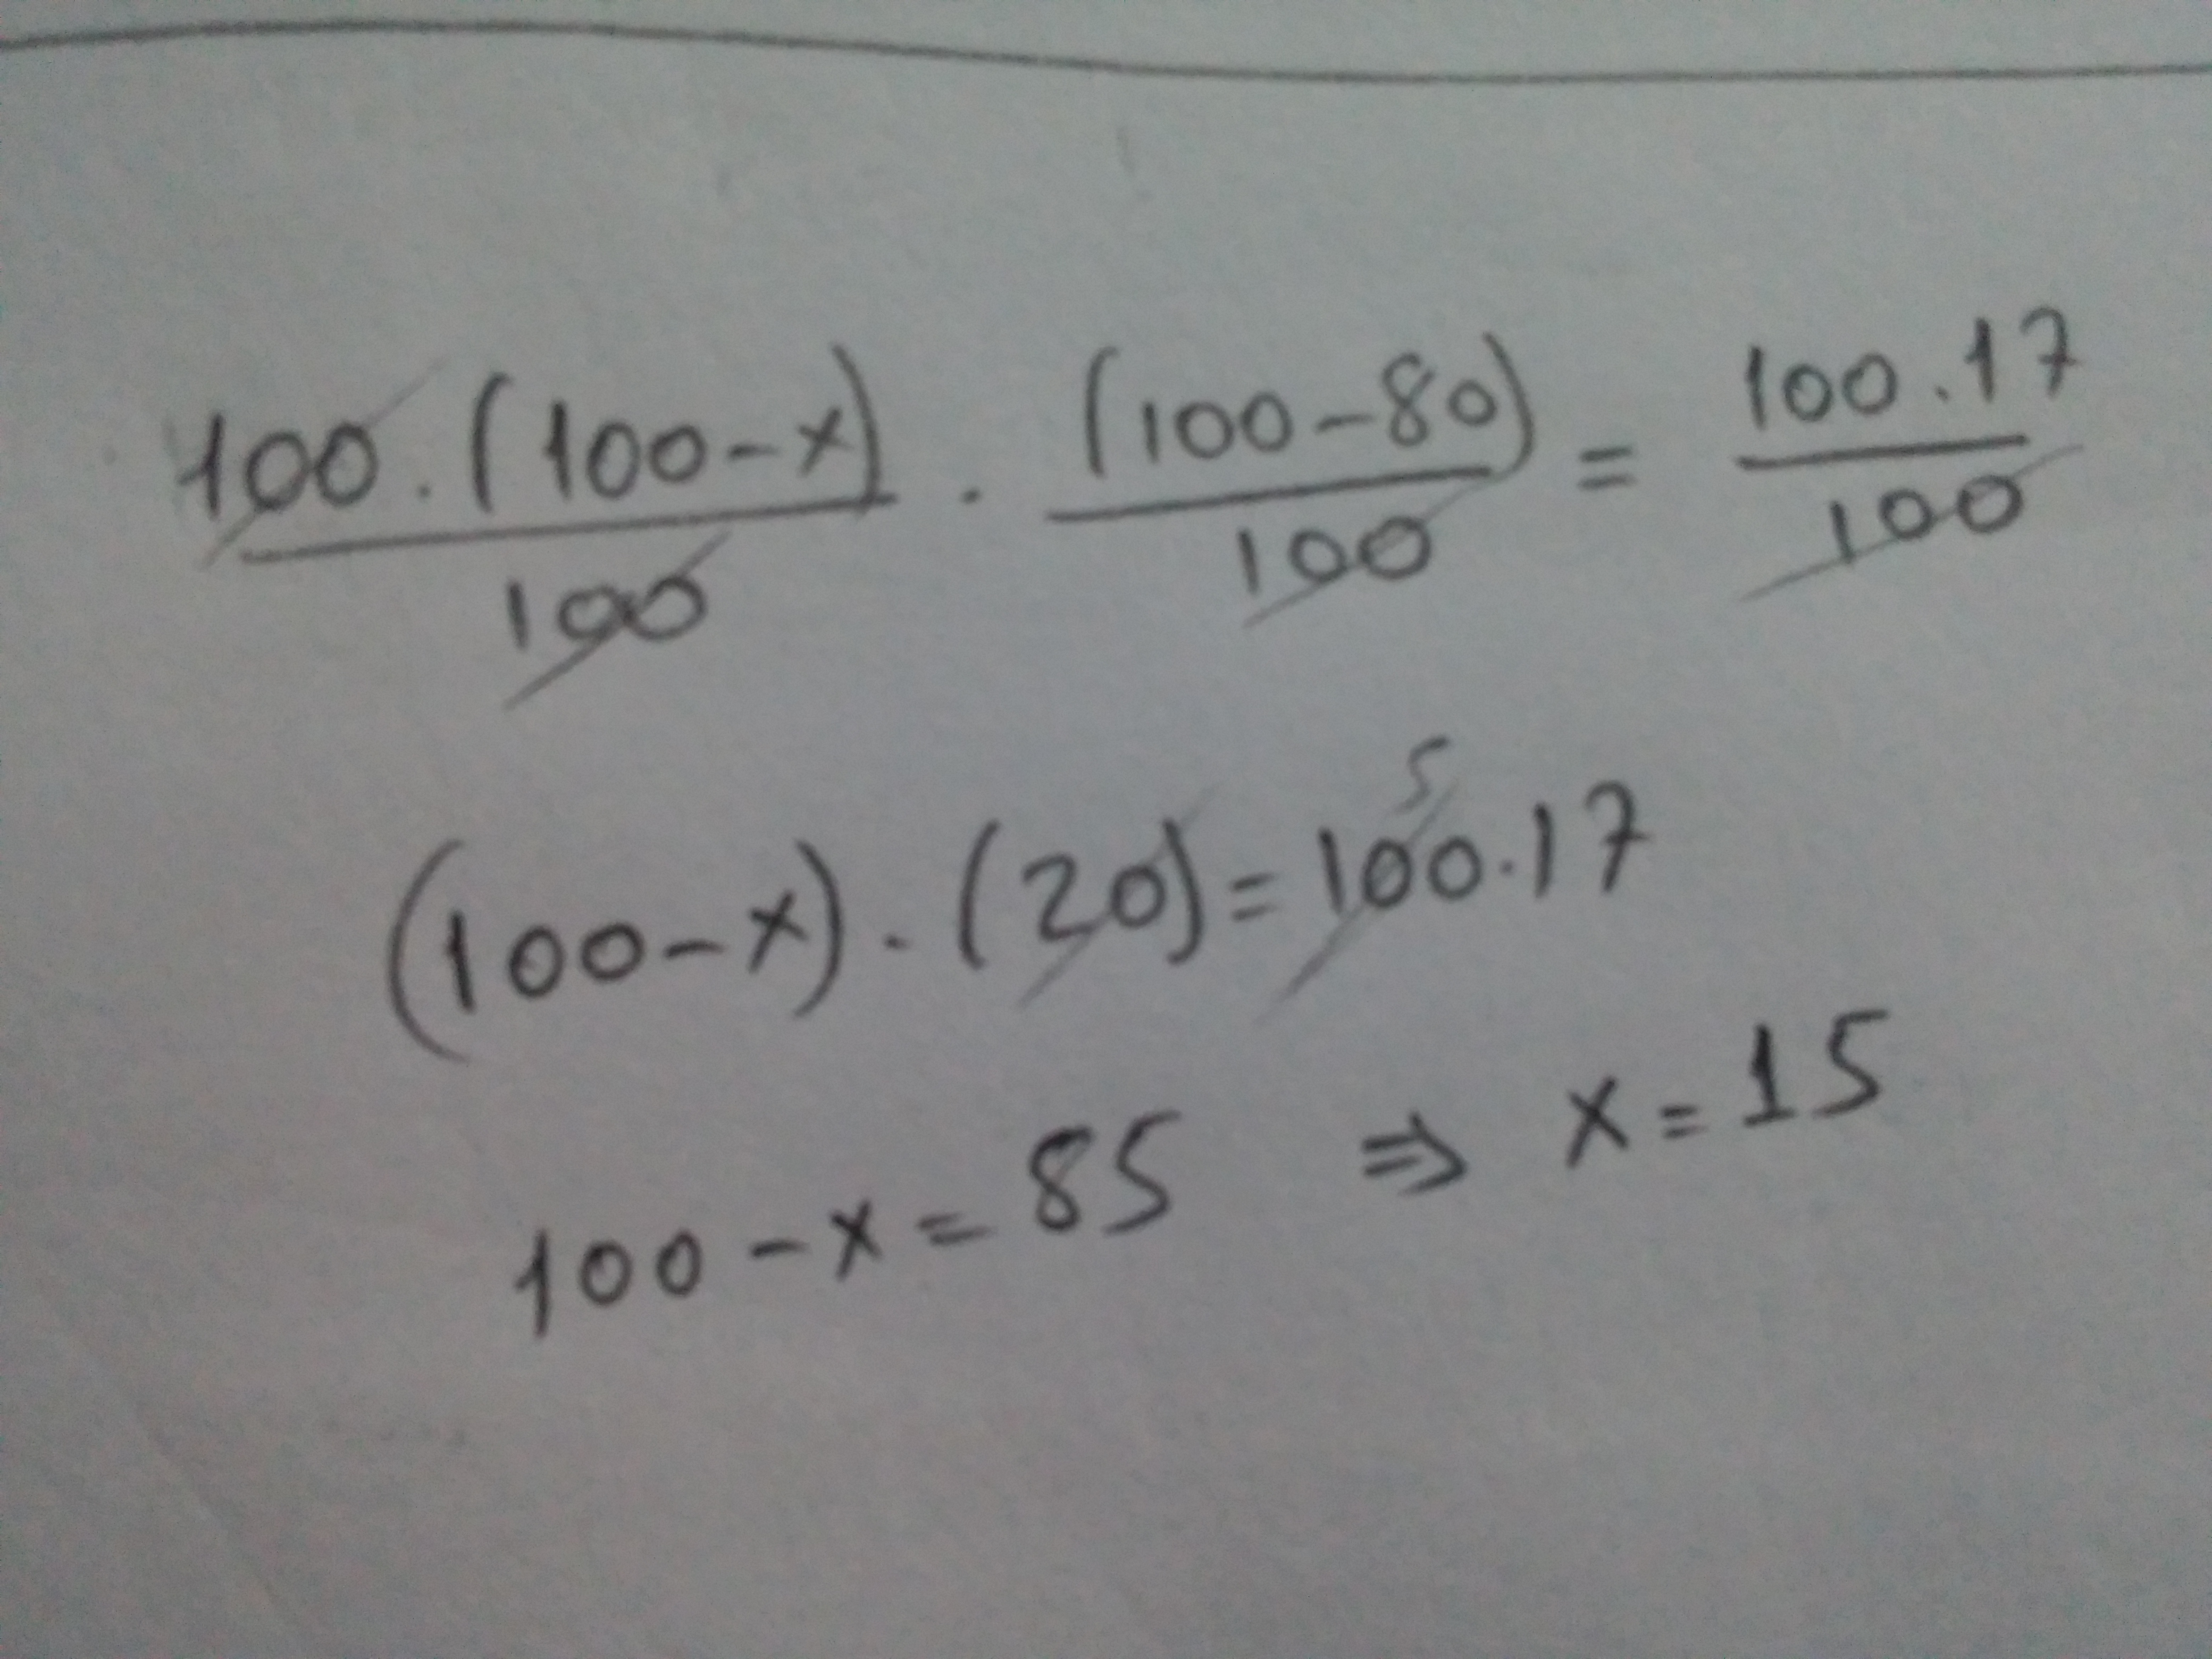 100.(100-x)/100 . (100-80)/100 = 100.17/100
(100-x).(20)=100.17
5
100-x=85 ⇒ x=15